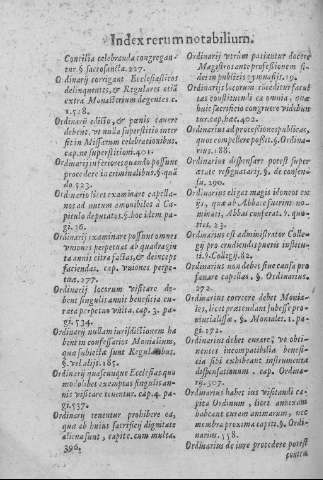 Index rerum notabilium.
Concilia celebranda congregantur.
tur § sacrosancta. 227.
Ordinarij corrigant Ecclesiasticos
delinquentes, & Regulares etiã
extra Monasterium degentes c.
1. 518.
Ordinarij edicto, & pœnis cauere
debent, vt nulla superstitio inter
sit in Missarum celebrationibus.
cap. ne superstitioni. 401.
Ordinarij inferiores quando possunt
procedere in criminalibus. §
do. 523.
Ordinarij licet examinare capellanos
ad nutum amouibiles à Capitulo
deputatos. §. hoc idem. pag.
36.
Ordinarij examinare possunt omnes
vniones perpetuas ab quadraginta
annis citra factas, & deinceps
faciendas. cap. vniones perpetuæ.
277.
Ordinarij locorum visitare debent
singulis annis beneficia curata
perpetuo vnita. cap. 3. pag.
534.
Ordinarij nullam iurisdictionem habent
in confessarios Monialium,
quæ subiectæ sunt Regularibus.
§. vel alijs. 185.
Ordinarij quascunque Ecclesias quomodolibet
exemptas singulis annis
visitare tenentur. cap. 4. pag.
537.
Ordinarij tenentur prohibere ea,
quæ ab huius sacrificij dignitate
aliena sunt, capite. cum multa.
396.
Ordinarij vtrùm patiantur docere
Magistros ante professionem fidei
in publicis gymnasijs. 19.
Ordinarijs locorum conceditur facultas
constituendi ea omnia, quæ
huic sacrificio congruere videbuntur
cap. hæc. 402.
Ordinarius ad processiones publicas,
quos compellere possit. §. Ordinarius.
188.
Ordinarius dispensare potest super
ætate resignatarij. §. de consensu.
290.
Ordinarius eligat magis idoneos ex
ijs, qui ab Abbate fuerint nominati,
Abbas conferat. §. quotiens.
23.
Ordinarius est administrator Collegij
pro erudiendis pueris instituti.
§. Collegij. 82.
Ordinarius non debet sine causa profanare
capellas. §. Ordinarius.
272.
Ordinarius corrigere debet Moniales,
licet prætendant subesse proximialissæ.
§. Moniales. 1. pag.
172.
Ordinarius debet curare, vt obtinentes
incompatibilia beneficia
sibi exhibeant instrumenta
dispensationum. cap. Ordinarij.
507.
Ordinarius habet ius visitandi capita
Ordinum, licet annexam
habeant curam animarum, nec
membra proxima capiti. §. Ordinarius.
558.
Ordinarius de iure procedere potest
contra